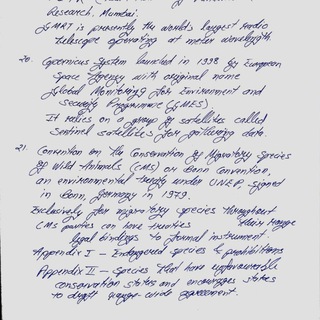 Research, Mumbai.
GMRT is presently the world's largest radio
telescope operating at meter wavelength
20. Copernicus System launched in 1998 by European
Space Agency with original name
Global Monitoring for Environment and
Security Programme (GMES)
It relies on a group of satellites called
Sentinel satellites for gathering data.
21. Convention on the Conservation of Migratory Species
of Wild Animals (CMS) or Bonn Convention,
an environmental treaty under UNEP signed
in Bonn, Germany in 1979.
Exclusively for migratory species throughout
their range
CMS parties can have treaties
legal bindings to formal instrument
Appendix I - Endangered species & prohibitions
Appendix II - Species that have unfavourable
conservation status and encourages states
to draft range-wide agreement.